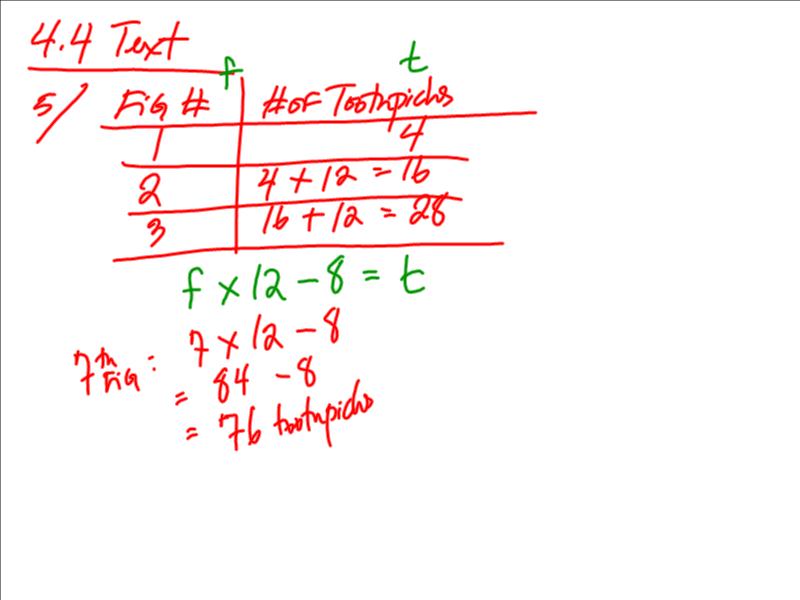 4.4 Text
f t
5/ Fig # # of Toothpicks
1 4
2 4 + 12 = 16
3 16 + 12 = 28
f x 12 - 8 = t
7th Fig: 7 x 12 - 8
= 84 - 8
= 76 toothpicks